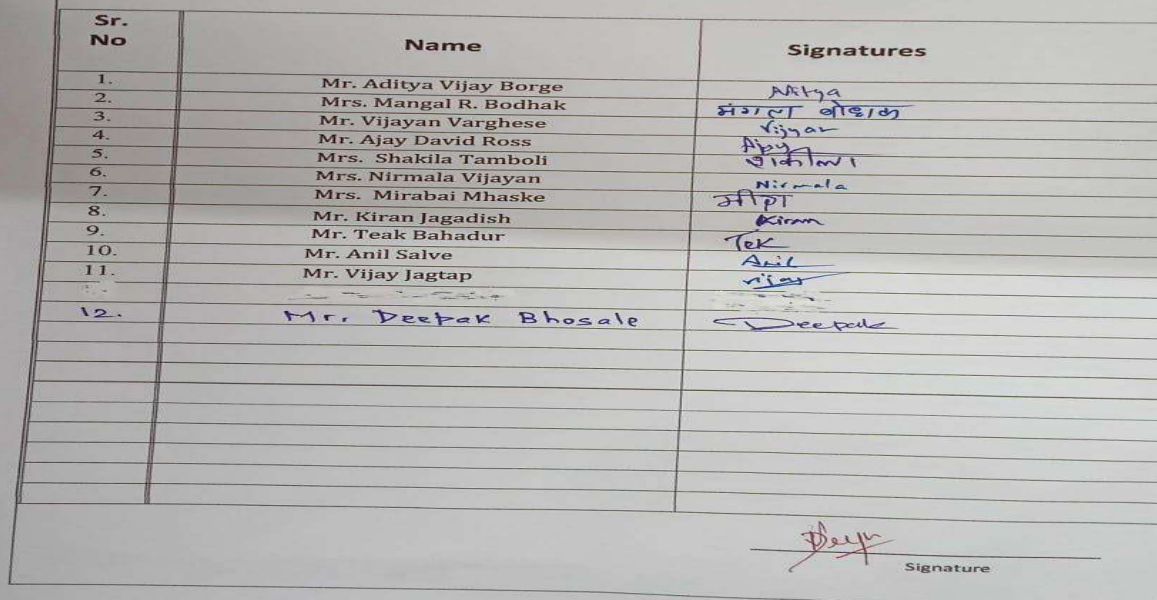 Sr. No Name Signatures
1. Mr. Aditya Vijay Borge Aditya
2. Mrs. Mangal R. Bodhak मंगल बोधक
3. Mr. Vijayan Varghese Vijyan
4. Mr. Ajay David Ross Ajay
5. Mrs. Shakila Tamboli शकीला
6. Mrs. Nirmala Vijayan Nirmala
7. Mrs. Mirabai Mhaske मीरा
8. Mr. Kiran Jagadish Kiran
9. Mr. Teak Bahadur Tek
10. Mr. Anil Salve Anil
11. Mr. Vijay Jagtap vijay
12. Mr. Deepak Bhosale Deepak
Signature